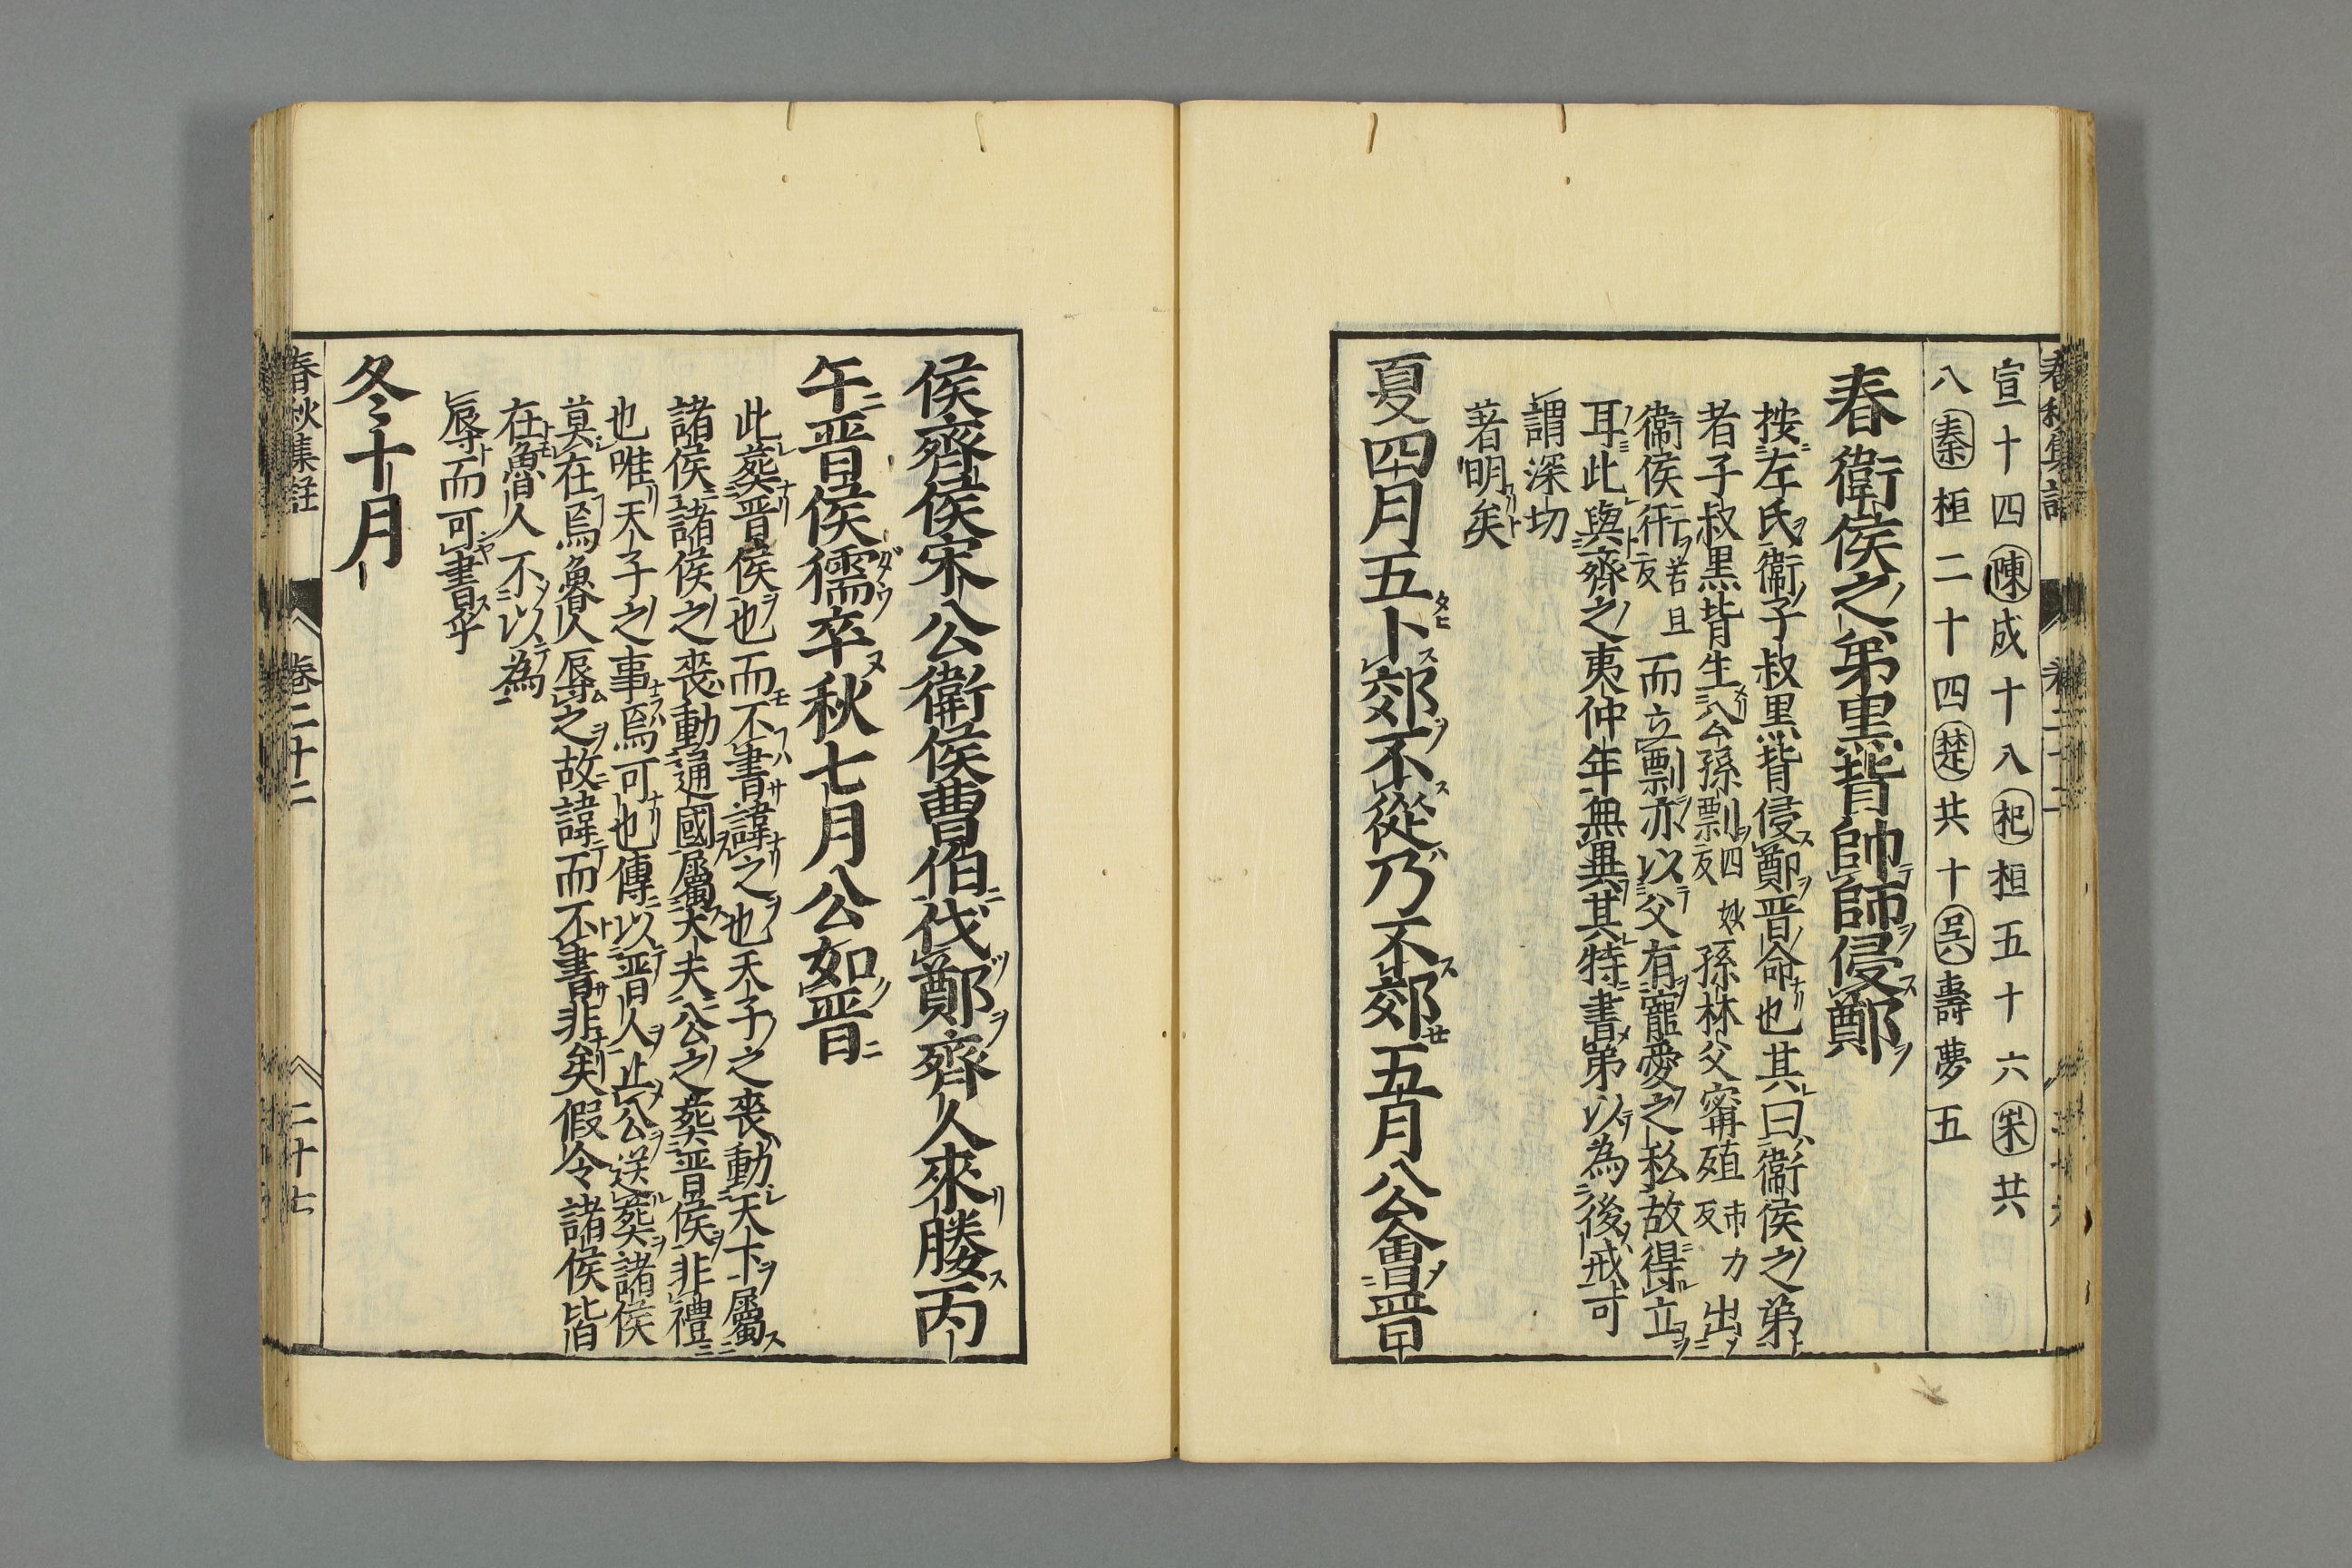 宣十四陳成十八杞桓五十六宋共
八秦桓二十四楚共十吳壽夢五
春衛侯之弟黒背帥師侵鄭
按左氏衛子叔黒背侵鄭晋命也其曰衛侯之弟
者子叔黒背生公孫剽四妙反孫林父甯殖市力反出
衛侯衎苦旦反而立剽亦以父有寵愛之私故得立
耳此與齊之夷仲年無異其特書弟以為後戒可
謂深切
著明矣
夏四月五卜郊不從乃不郊五月公會晋
侯齊侯宋公衛侯曹伯伐鄭齊人來媵丙
午晋侯獳卒秋七月公如晋
此葬晋侯也而不書諱之也天子之喪動天下屬
諸侯諸侯之喪動通國屬大夫公之葬晋侯非禮
也唯天子之事焉可也傳以晋人止公送葬諸侯
莫在焉魯人辱之故諱而不書非矣假令諸侯皆
在魯人不以為
辱而可書乎
冬十月
春秋集註 卷二十二 二十七